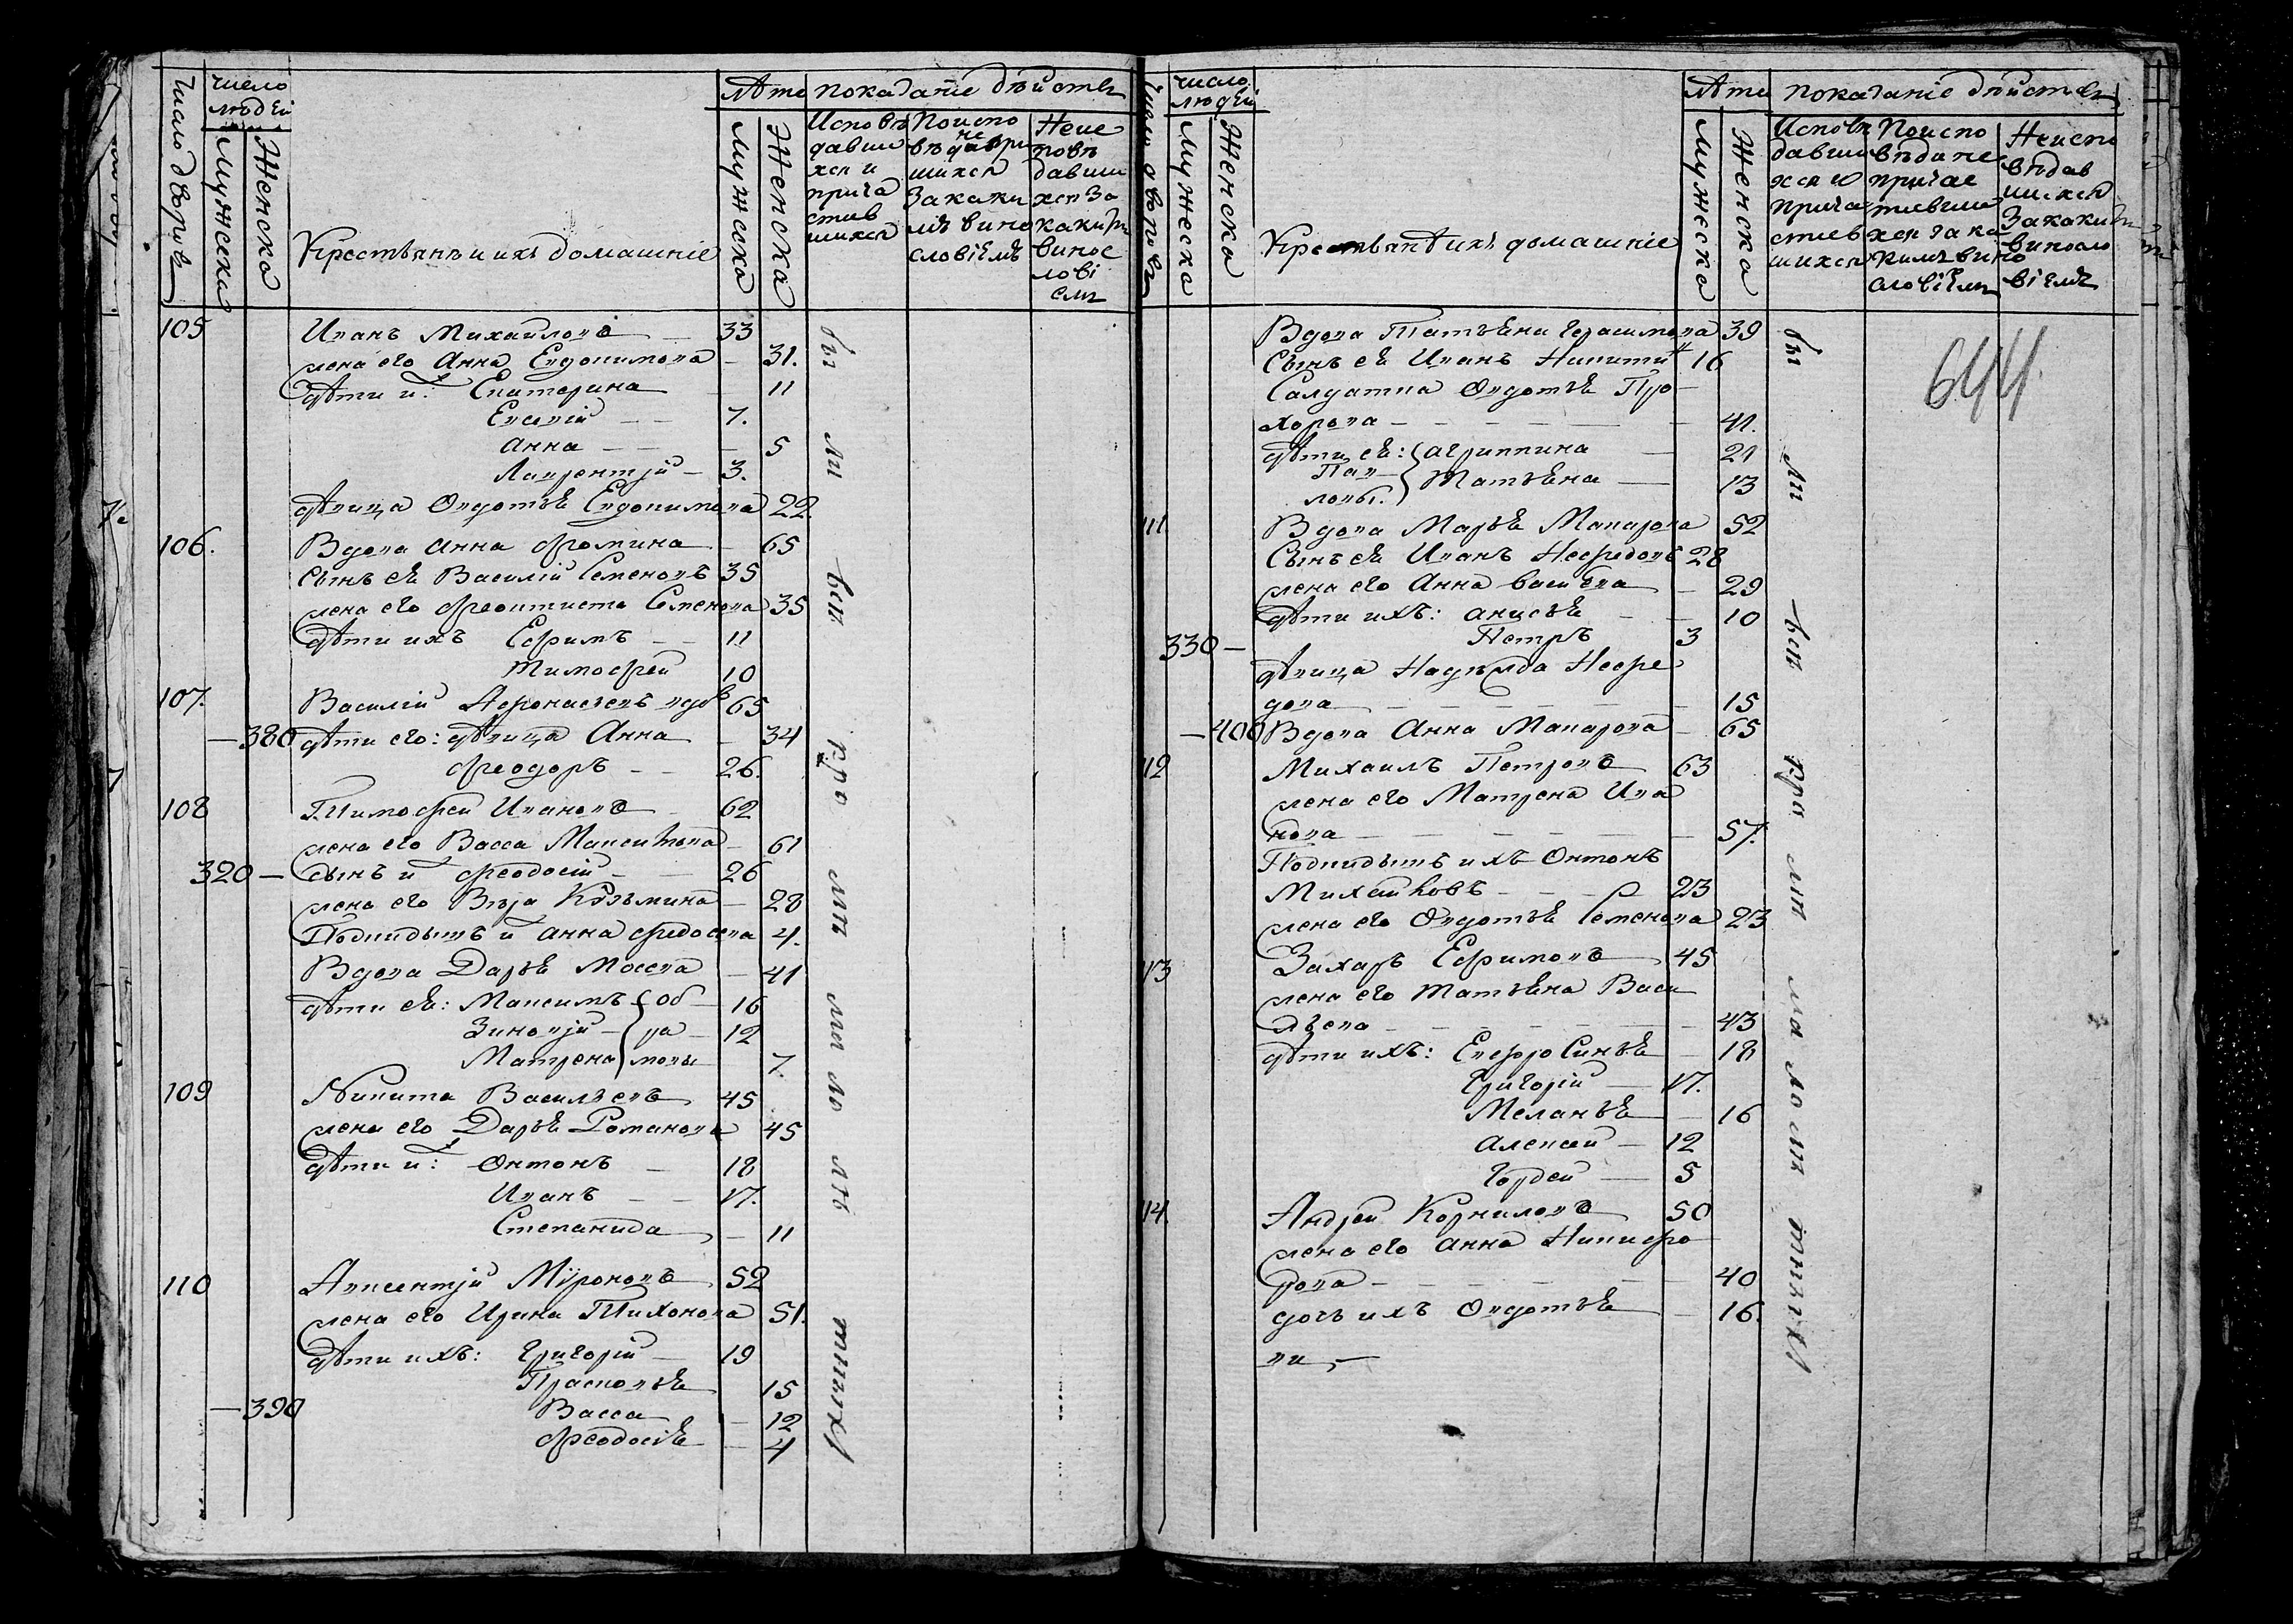 число дворовъ
число людей
мужеска
женска
Крестьянъ и ихъ домашніе
Лѣта
мужеска
женска
показаніе дѣйств
Исповѣдавшихся и причастившихся
По исповѣда не при шихся за какимъ винословіемъ
Не исповѣдавшихся за какимъ винословіемъ
105 Иванъ Михайловъ — 33
жена его Анна Евдокимова — 31.
дѣти и: Екатерина — 11
Евсевій — 7.
Анна — 5
Лаврентій — 3.
дѣвица Овдотья Евдокимова 22.
106. Вдова Анна Фомина — 65
Сынъ ея Василій Семеновъ 35
жена его Феоктиста Семенова 35
дѣти ихъ Ефимъ — 11
Тимофей 10
107. Василій Афонасьевъ вдов 65
— 380 дѣти его: дѣвица Анна — 34
Феодоръ — 26.
108 Тимофей Ивановъ 62
жена его Васса Максимова — 61
320 — Сынъ и Феодосій — 26
жена его Вѣра Козьмина — 28
Подкидышъ и Анна Федосева 4.
Вдова Дарья Мосева — 41
дѣти ея: Максимъ Об — 16
Зиновій — ра — 12
Матрена мовы 7.
109 Никита Васильевъ 45
жена его Дарья Романова 45
дѣти и: Онтонъ — 18
Иванъ — 17.
Степанида — 11
110 Авксентій Міроновъ 52
жена его Ирина Тихонова 51.
дѣти ихъ: Григорій — 19
Прасковья 15
— 390 Васса — 12
Феодосія — 4
бы ли
число дворовъ
число людей
мужеска
женска
Крестьянъ и ихъ домашніе
Лѣта
мужеска
женска
показаніе дѣйств
Исповѣдавшихся и причастившихся
По исповѣди не причаствшися за какимъ винословіемъ
Не исповѣдавшихся за какимъ винословіемъ
644.
Вдова Татьяна Герасимова 39
Сынъ ея Иванъ Никити 16
Салдатка Овдотья Про-
хорова — 41.
дѣти ея: Агриппина — 21
Пав-
ловы. Татьяна — 13
111 Вдова Марья Макарова 52
Сынъ ея Иванъ Нефедовъ 28
жена его Анна Васильева — 29
дѣти ихъ: Анисья — 10
330 — Петръ 3
дѣвица Надежда Нефе
дова — 15
— 400 Вдова Анна Макарова — 65
112 Михаилъ Петровъ 63
жена его Матрена Ива
нова — 57.
Подкидышъ ихъ Онтонъ
Михайловъ — 23
жена его Овдотья Семенова 23
113 Захаръ Ефимовъ 45
жена его Татьяна Васи
льева — 43
дѣти ихъ: Евфросинья — 18
Григорій — 17.
Меланья — 16
Алексей — 12
Гордей — 5
114. Андрей Корниловъ 50
жена его Анна Никифо
рова — 40
дочь ихъ Овдотья — 16.
бы ли